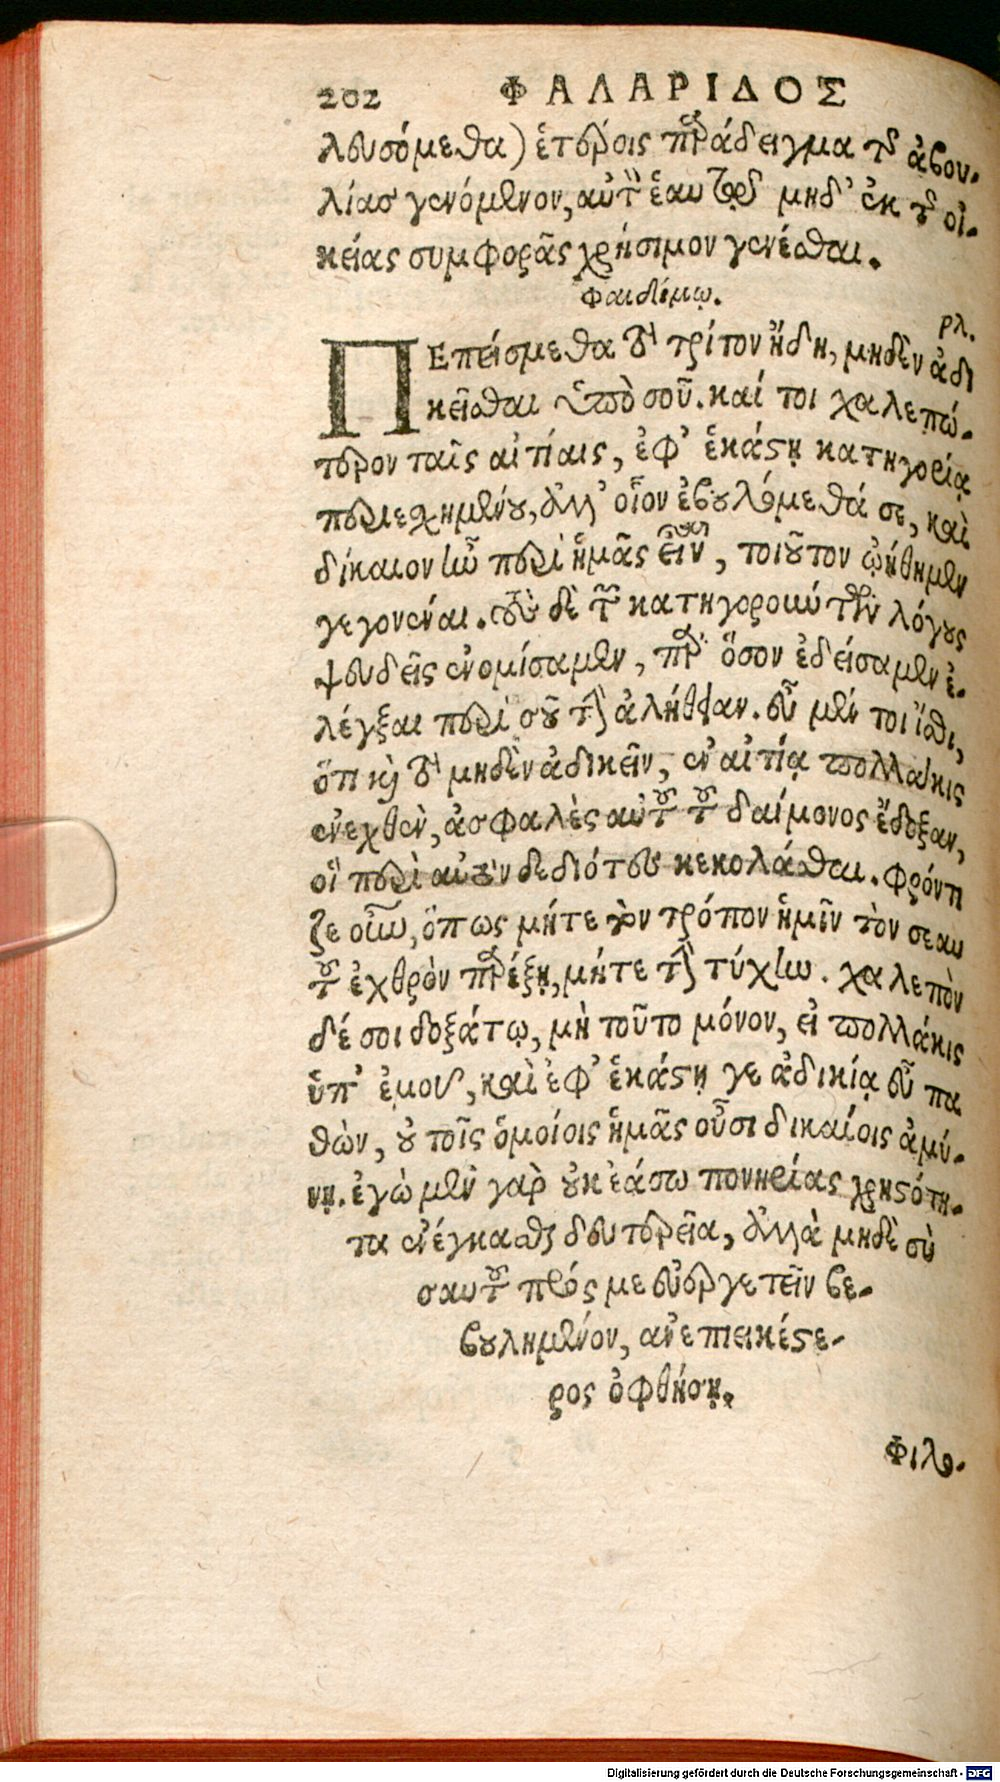 202 ΦΑΛΑΡΙΔΟΣ
λευσόμεθα) ἑτέροις παράδειγμα τῆς ἀβου-
λίας γενόμενον, αὐτὸν ἑαυτῷ μηδ' ἐκ τῆς οἰ-
κείας συμφορᾶς χρήσιμον γενέσθαι.
Φαιδίμῳ. ρλ.
ΠΕπείσμεθα τὸ τρίτον ἤδη, μηδὲν ἀδι
κεῖσθαι ὑπὸ σοῦ. καί τοι χαλεπώ-
τερον ταῖς αἰτίαις, ἐφ' ἑκάστῃ κατηγορίᾳ
περιεχημένου, ἀλλ' οἷον ἐβουλόμεθά σε, καὶ
δίκαιον ἦν περὶ ἡμᾶς εἶναι, τοιοῦτον ᾠήθημεν
γεγονέναι. οὐ δὲ τοὺς κατηγορούντων λόγους
ψευδεῖς ἐνομίσαμεν, παρ' ὅσον ἐδείσαμεν ἐ-
λέγξαι περὶ σοῦ τὴν ἀλήθειαν. εὖ μέν τοι ἴσθι,
ὅτι καὶ τὸ μηδὲν ἀδικεῖν, ἐν αἰτίᾳ πολλάκις
ἐνεχθὲν, ἀσφαλὲς αὐτοῦ τοῦ δαίμονος ἔδοξαν,
οἳ περὶ αὐτὸν δεδιότες κεκολάσθαι. φρόντι
ζε οὖν, ὅπως μήτε τὸν τρόπον ἡμῖν τὸν σεαυ
τοῦ ἐχθρὸν παρέξῃ, μήτε τὴν τύχην. χαλεπὸν
δέ σοι δοξάτω, μὴ τοῦτο μόνον, εἰ πολλάκις
ὑπ' ἐμοῦ, καὶ ἐφ' ἑκάστῃ γε ἀδικίᾳ εὖ πα
θὼν, οὐ τοῖς ὁμοίοις ἡμᾶς οὖσι δικαίοις ἀμύ-
νῃ. ἐγὼ μὲν γὰρ οὐκ ἐάσω πονηρίας χρηστότη-
τα ἐνέγκασθαι δευτερεῖα, ἀλλὰ μηδὲ σὺ
σαυτοῦ πρός με εὐεργετεῖν βε-
βουλημένον, ἀνεπιεικέστε-
ρος ὀφθήσῃ.
Φιλο-
Digitalisierung gefördert durch die Deutsche Forschungsgemeinschaft - DFG